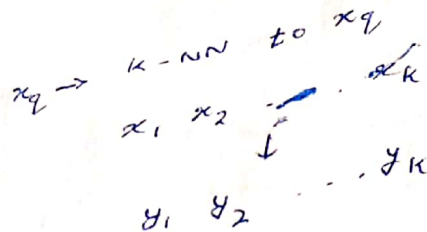 xq → K-NN to xq
x1 x2 - . xK
↓
y1 y2 . . . yK